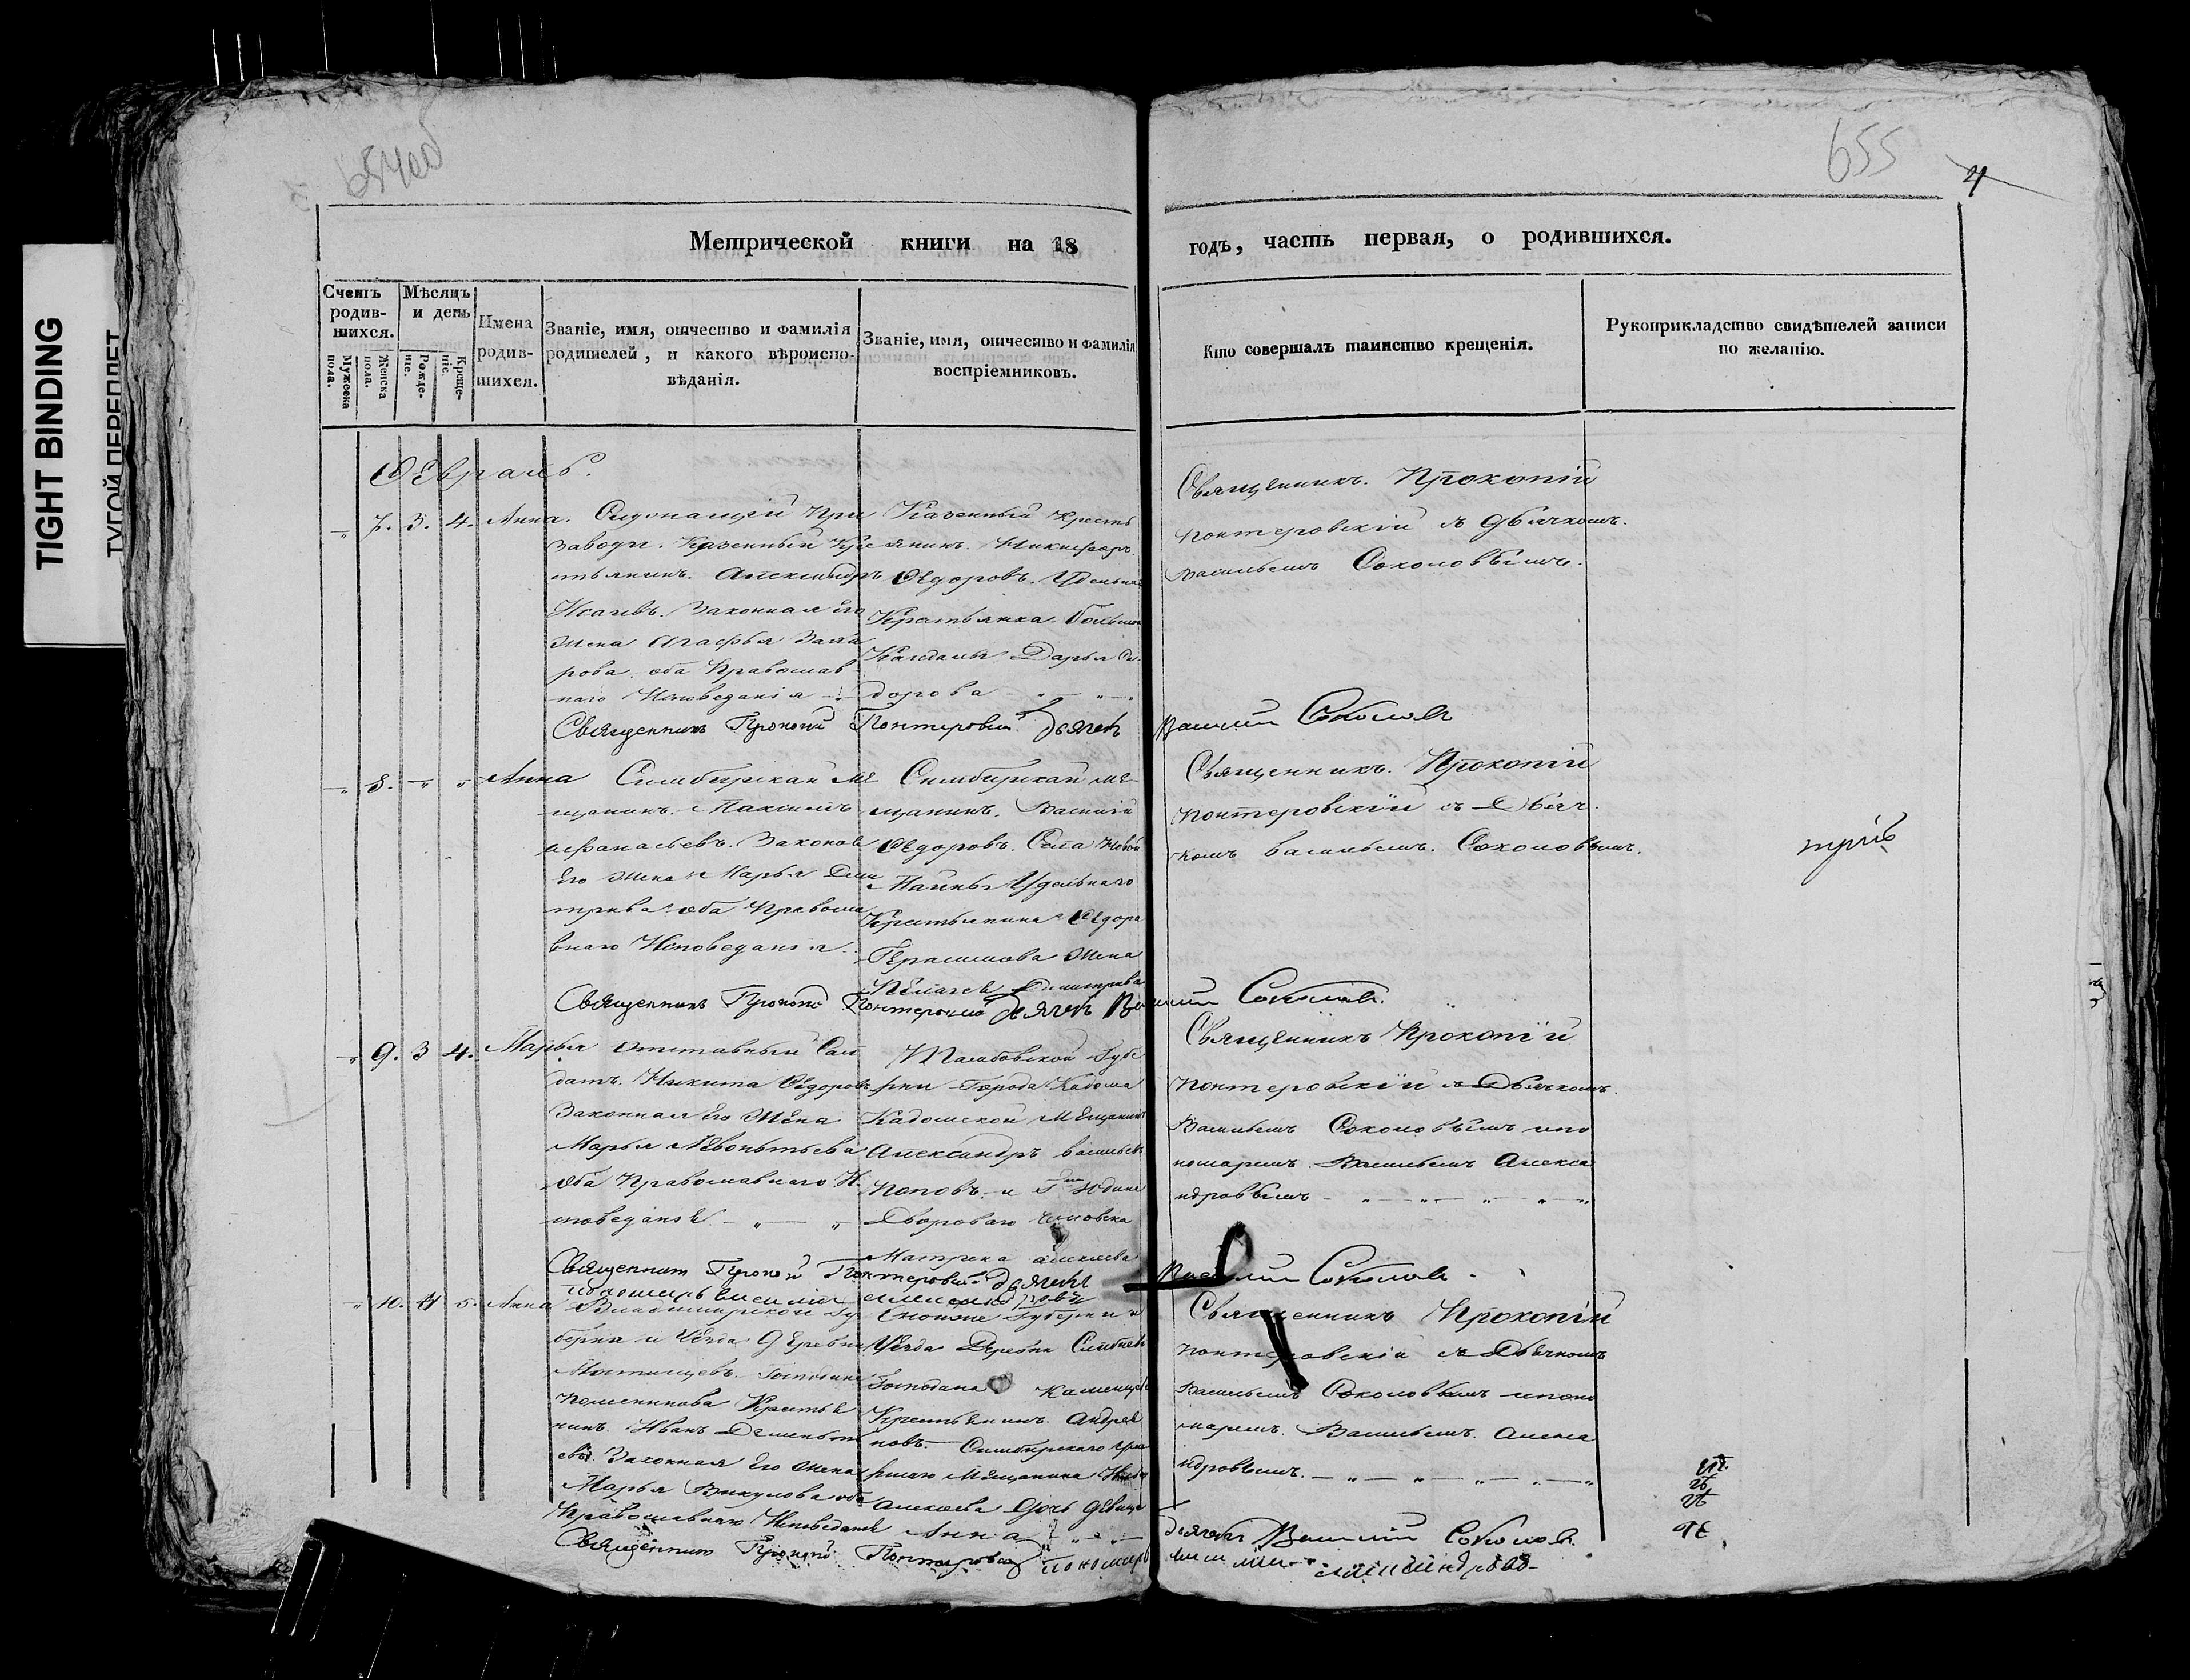 TIGHT BINDING
ТУГОЙ ПЕРЕПЛЕТ
655
Метрической книги на 18
годъ, часть первая, о родившихся.
Счетъ родившихся.
Мужеска пола.
Женска пола.
Мѣсяцъ и день
Рождение.
Крещение.
Имена родившихся.
Званіе, имя, отчество и фамилія
родителей, и какого вѣроиспо-
вѣданія.
Званіе, имя, отчество и фамилія
воспріемниковъ.
Кто совершалъ таинство крещенія.
Рукоприкладство свидѣтелей записи
по желанію.
Февраль.
7. 3. 4. Анна.
Заводѣ. Казенный Кре
стьянинъ. Александръ
Исаевъ. Законная Его
Жена Агафья Заха
рова. оба Православ
наго Исповеданія
Казенный Кресть
янинъ. Никифоръ
Ѳедоровъ. Удельная
Крестьянка
Дарья Си
дорова
Священникъ. Прокопій
Понтеровскій съ Дьячкомъ.
Васильемъ Соколовымъ.
Священникъ Прокопій Понтеровскій Дьячекъ Василій Соколовъ
8. Анна
Симбирскай Ме
щанинъ. Максимъ
Афанасьевъ. Законая
Его Жена Марья Дми
трива оба Правосла
внаго Исповеданія
Симбирскай ме-
щанинъ. Василій
Ѳедоровъ. Села Новой
Майны Удельнаго
Крестьянина Ѳедора
Герасимова Жена
Пелагея Димитрива
Священникъ. Прокопій
Понтеровскій съ Дьяч
комъ Васильемъ. Соколовымъ.
Священникъ Прокопій Понтеровскій Дьячекъ Василій Соколовъ.
9. 3 4. Марья
Отставный Сол
датъ. Никита Ѳедоровъ
Законная Его Жена
Марья Левонтьева
оба Православнаго И
споведанія.
Тамбовской Губе
рни Города Кадома
Кадомской Мещанинъ
Александръ Васильевъ
Поповъ. и Гна Юдина
Двороваго человека
Матрена Алексеева
Священникъ Прокопій
Понтеровскій съ Дьячкомъ
Васильемъ Соколовымъ и по
номаремъ Васильемъ Алекса
ндровымъ
Священникъ Прокопій Понтеровскій Дьячекъ Василій Соколовъ.
Пономарь Василій Александровъ
10. 4 5. Анна
Владимирской Гу
берни и Уезда Деревни
Крестья
нинъ. Иванъ Деменьть
евъ Законная Его Жена
Марья Викулова оба
Православнаго Исповеданія
Губерни и
Уезда Деревни
Господина
Крестьянинъ. Андрей
новъ. Симбирскаго
Мещанина
Алексеева Дочь девица
Анна
Священникъ Прокопій
Понтеровскій съ Дьячкомъ
Васильемъ Соколовымъ и поно
маремъ. Васильемъ. Алекса
ндровымъ.
Священникъ Прокопій Понтеровскій Дьячекъ Василій Соколовъ.
Пономарь Василій Александровъ